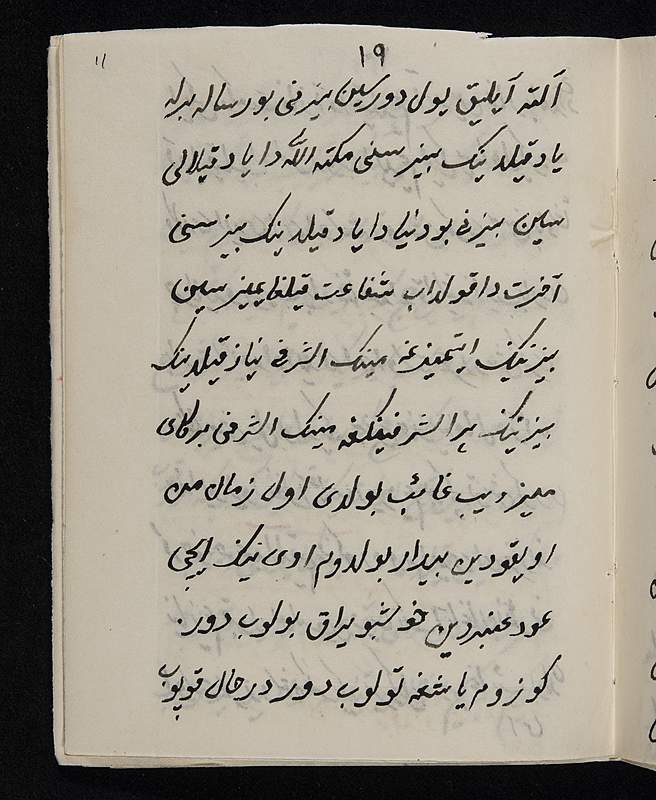 ۱۹
۱۱
آلته آیلیق یول دور سین بیزنی بو رساله برله
یاد قیلدینک بیز سنی مکته الله دا یاد قیلالی
سین بیزنی بو دنیا دا یاد قیلدینک بیز سنی
آخرت دا قولداب شفاعت قیلغایمیز سین
بیزنینک ایتمیزغه مینک الشرفی نیاز قیلدینک
بیزنینک بر الشرفینکغه مینک الشرفی برکای
میز دیب غائب بولدی اول زمان من
اویقودین بیدار بولدوم اوی نینک ایچی
عود عنبردین خوشبویراق بولوب دور.
کوزوم یاشغه تولوب دور درحال قوپوب